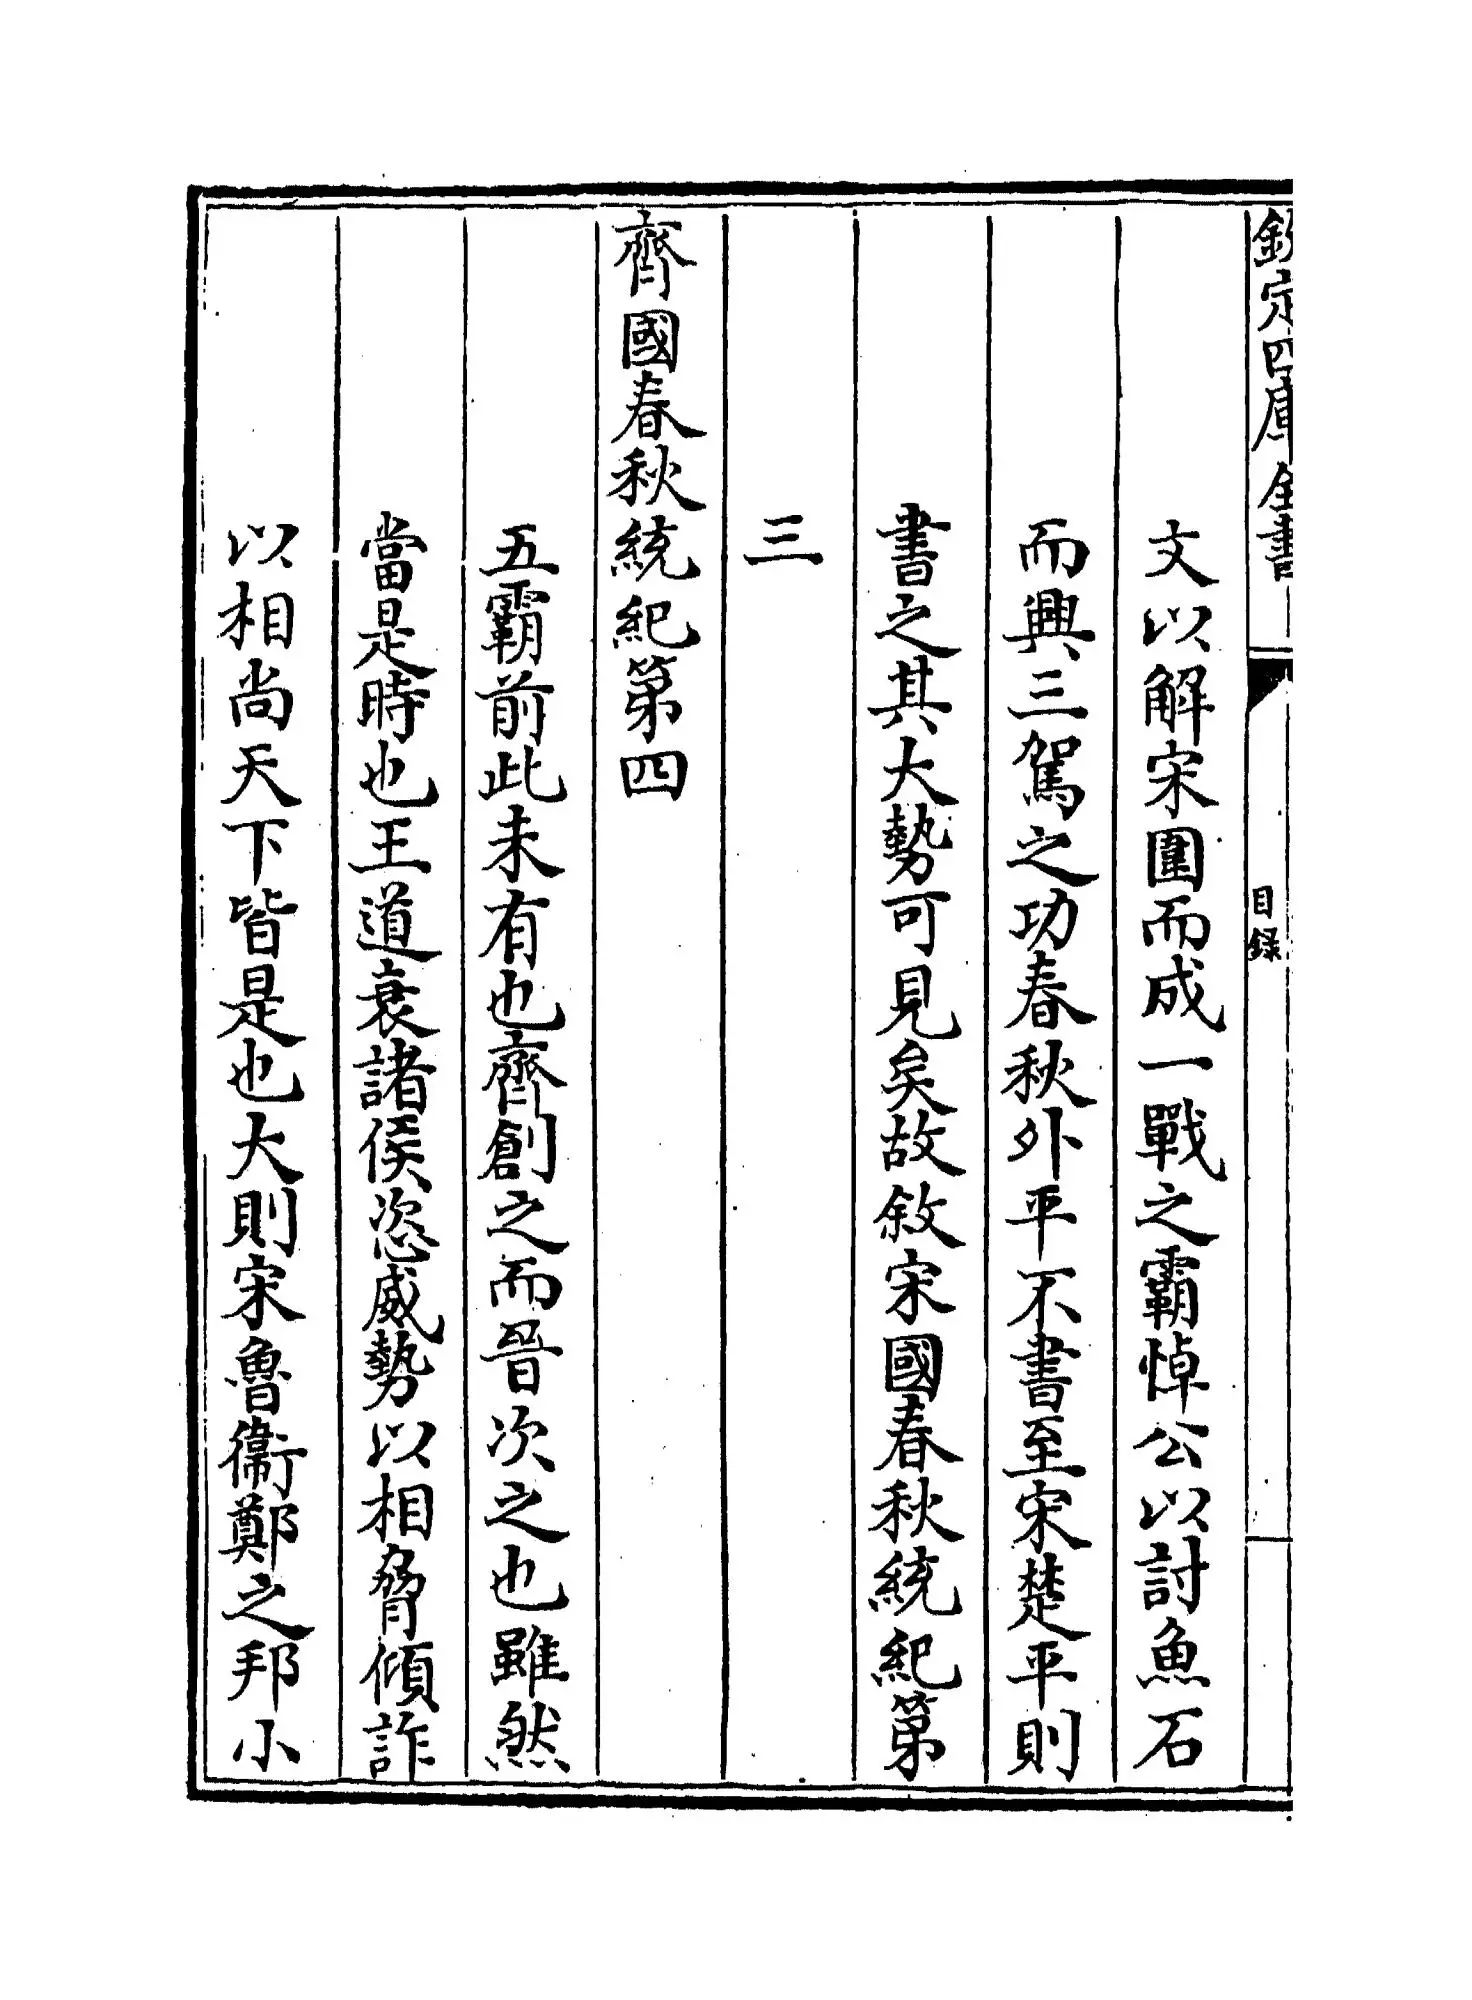 欽定四庫全書
目録
文以解宋圍而成一戰之霸悼公以討魚石
而興三駕之功春秋外平不書至宋楚平則
書之其大勢可見矣故敘宋國春秋統紀第
三
齊國春秋統紀第四
五霸前此未有也齊創之而晉次之也雖然
當是時也王道衰諸侯恣威勢以相脅傾詐
以相尚天下皆是也大則宋魯衞鄭之邦小